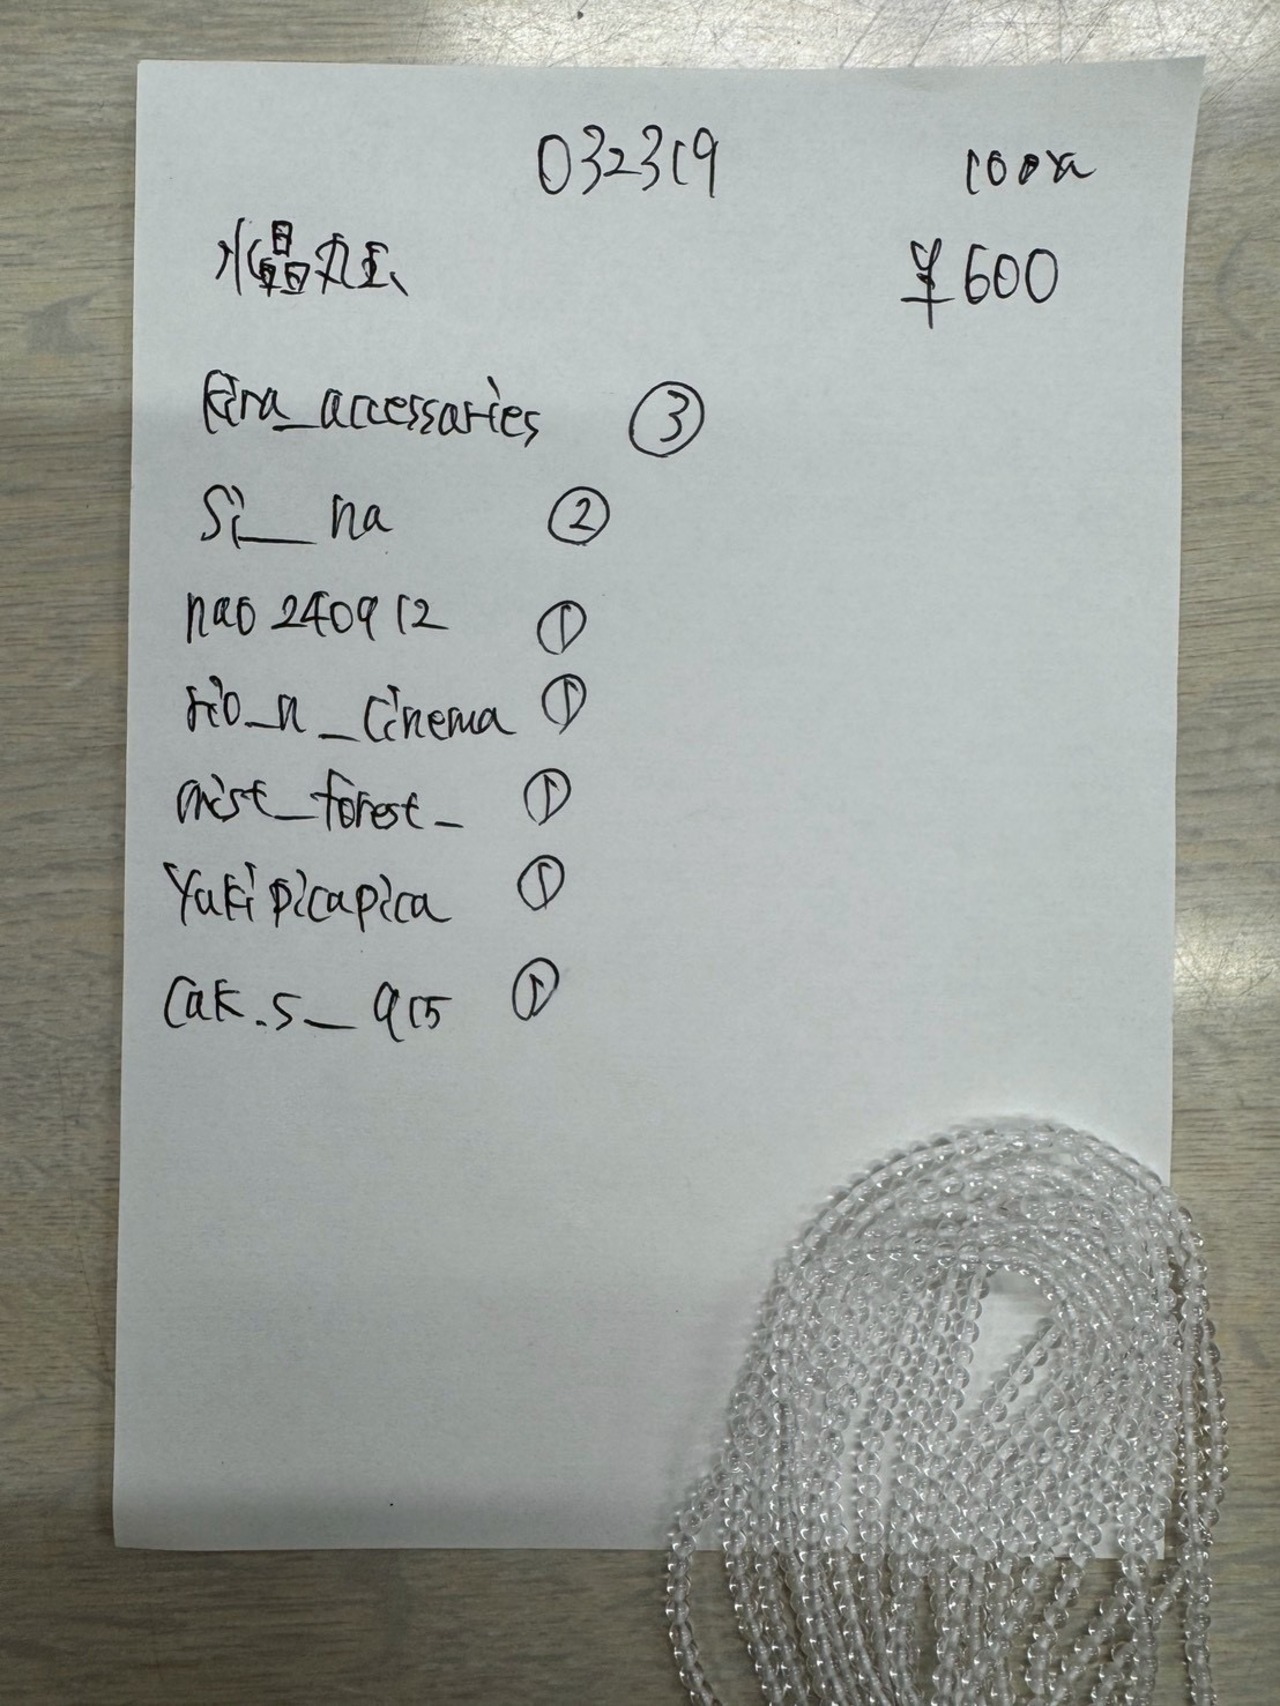 032319
100pcs
水晶丸玉
¥600
kira_accessaries ③
Si__na ②
nao240912 ①
rio_n_cinema ①
mist_forest_ ①
Yukipicapica ①
Cak.s_915 ①